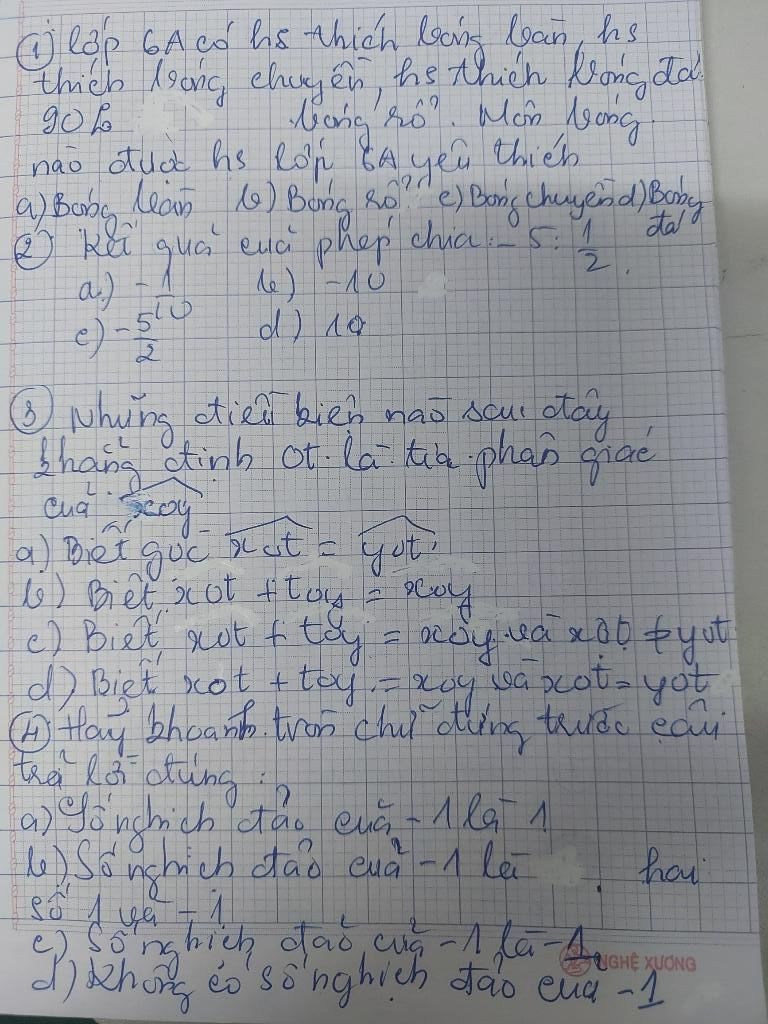 ① Lớp 6A có hs thích bóng bàn, hs
thích bóng chuyền, hs thích bóng đá
90%
bóng rổ. Môn bóng
nào được hs lớp 6A yêu thích
a) Bóng bàn b) Bóng rổ c) Bóng chuyền d) Bóng
đá
② Kết quả của phép chia: - 5 : 1/2
a) -1/10 b) -10
c) -5/2 d) 10
③ Những điều kiện nào sau đây
khẳng định ot là tia phân giác
của xoy
a) Biết góc xot = yot
b) Biết xot + toy = xoy
c) Biết xot + toy = xoy và xot ≠ yot
d) Biết xot + toy = xoy và xot = yot
④ Hãy khoanh tròn chữ đứng trước câu
trả lời đúng :
a) Số nghịch đảo của - 1 là 1
b) Số nghịch đảo của - 1 là . hai
số 1 và - 1
c) Số nghịch đảo của -1 là -1
NGHỆ XƯƠNG
d) Không có số nghịch đảo của -1